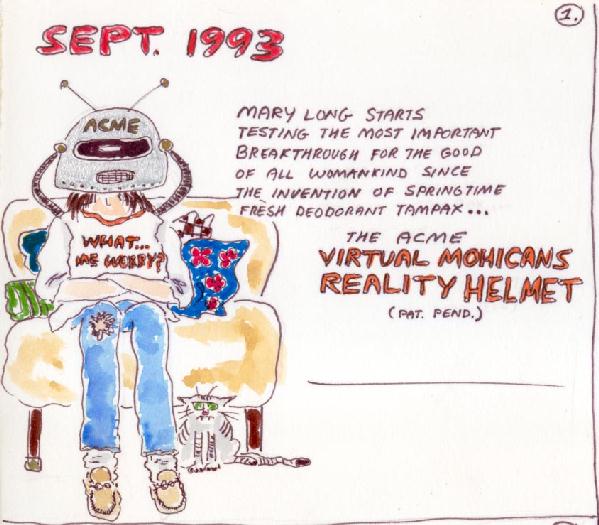 1.
SEPT. 1993
MARY LONG STARTS
TESTING THE MOST IMPORTANT
BREAKTHROUGH FOR THE GOOD
OF ALL WOMANKIND SINCE
THE INVENTION OF SPRINGTIME
FRESH DEODORANT TAMPAX...
THE ACME
VIRTUAL MOHICANS
REALITY HELMET
(PAT. PEND.)
ACME
WHAT...
ME WORRY?